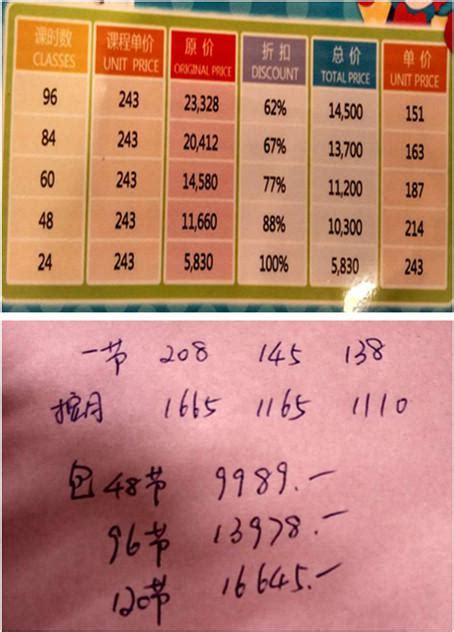 课时数 课程单价 原价 折扣 总价 单价
CLASSES UNIT PRICE ORIGINAL PRICE DISCOUNT TOTAL PRICE UNIT PRICE
96 243 23,328 62% 14,500 151
84 243 20,412 67% 13,700 163
60 243 14,580 77% 11,200 187
48 243 11,660 88% 10,300 214
24 243 5,830 100% 5,830 243
一节 208 145 138
按月 1665 1165 1110
包48节 9989.一
96节 13978.一
120节 16645.一